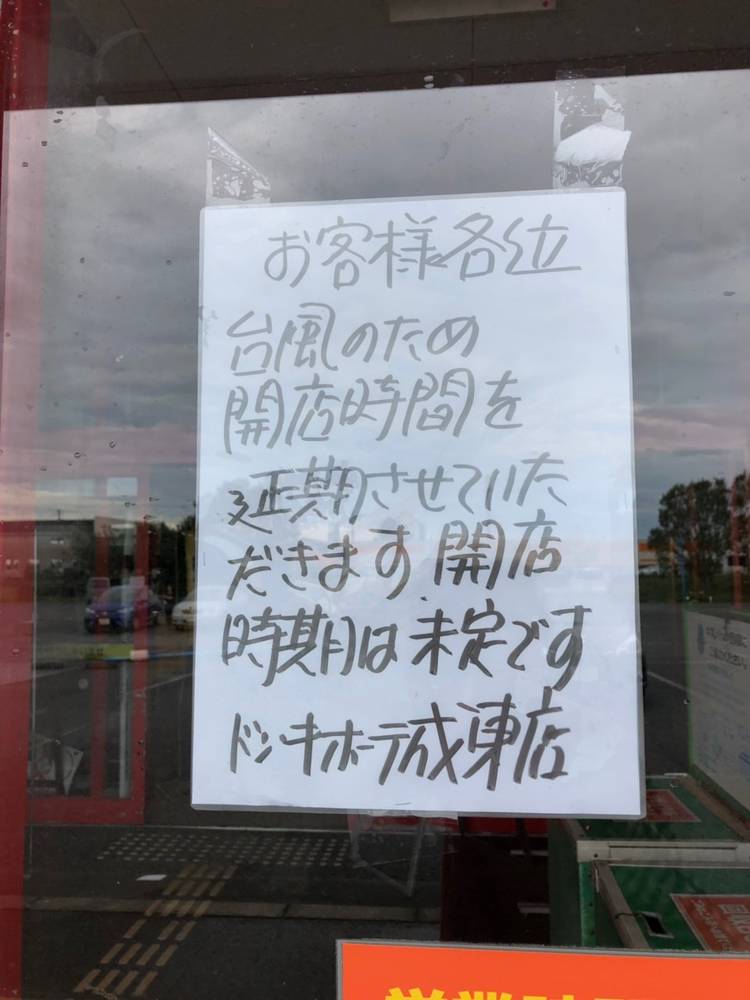 お客様各位
台風のため
開店時間を
延期させていた
だきます。開店
時期は未定です
ドンキホーテ成東店
営業時間